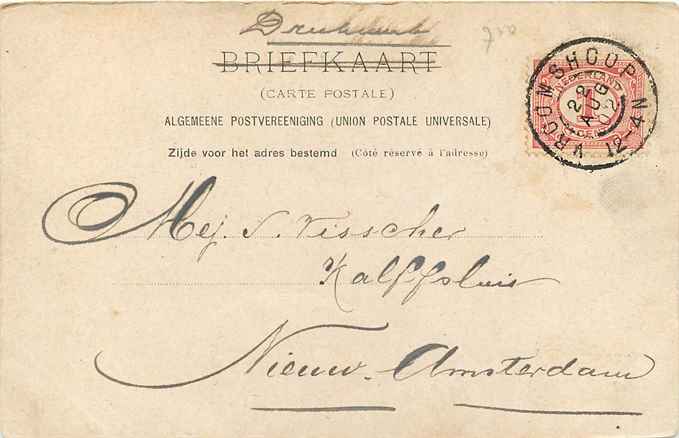 Drukwerk
BRIEFKAART
(CARTE POSTALE)
ALGEMEENE POSTVEREENIGING (UNION POSTALE UNIVERSALE)
Zijde voor het adres bestemd (Côté réservé à l'adresse)
VROOMSHOOP
22
AUG
02
12-4N
NEDERLAND
1
CENT
Mej. S. Visscher
Kalffsluis
Nieuw-Amsterdam